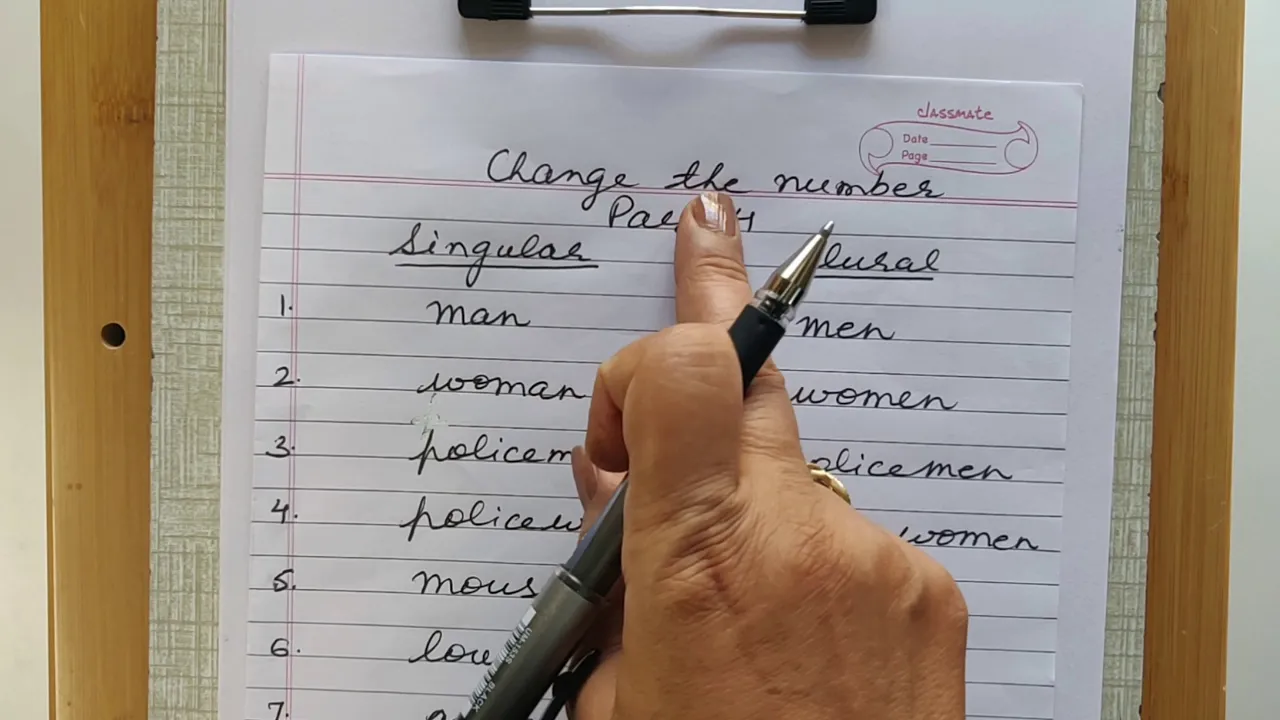 classmate
Date
Page
Change the number
Singular
1. man men
2. woman women
3. policem olicemen
4. policew women
5. mous
6. lou
7.
BLACK